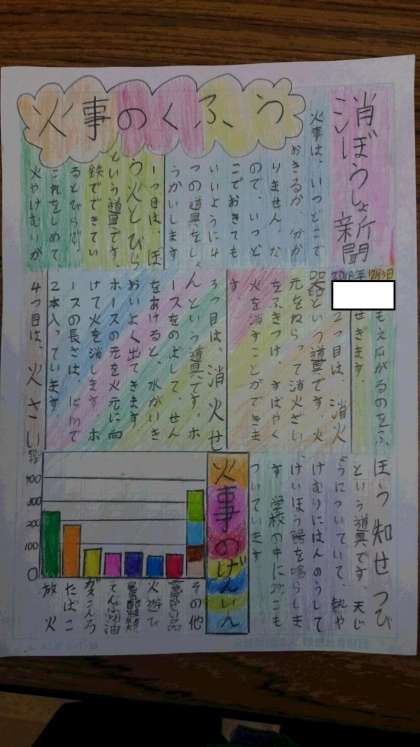 消ぼうしょ新聞
火事のくふう
火事は、いつどこで
おきるか、分か
りません。な
ので、いつど
こでおきても
いいように4
つの道具をしょ
うかいします
1つ目は、ぼ
う火とびら
という道具です。
鉄でできてい
るとびらで、
これをしめて、
火やけむりが
もえ広がるのをふ
せぎます。
2つ目は、消火
器という道具です。火
元をねらって消火ざい
をふきつけ、すばやく
火を消すことができま
す。
3つ目は、消火せ
んという道具です。ホ
ースをのばして、せん
をあけると、水がいき
おいよく出てきます。
ホースの元を火元に向
けて火を消します。ホ
ースの長さは、
2本入っています。
4つ目は、火さい
ほう知せつび
という道具です。天じ
ょうについていて、熱や
けむりにはんのうして
けいほう器を鳴らしま
す。学校の中に
ついています
火事のげんいん
400
300
200
100
0
放火
たばこ
火遊び
その他